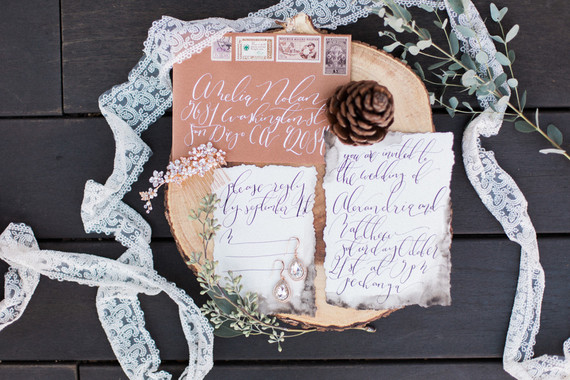 Amelia Nolan
Washington St
San Diego CA
please reply
by september 1st
M
you are invited to
the wedding of
Alexandrea and
Matthew
saturday October
21st at 3pm